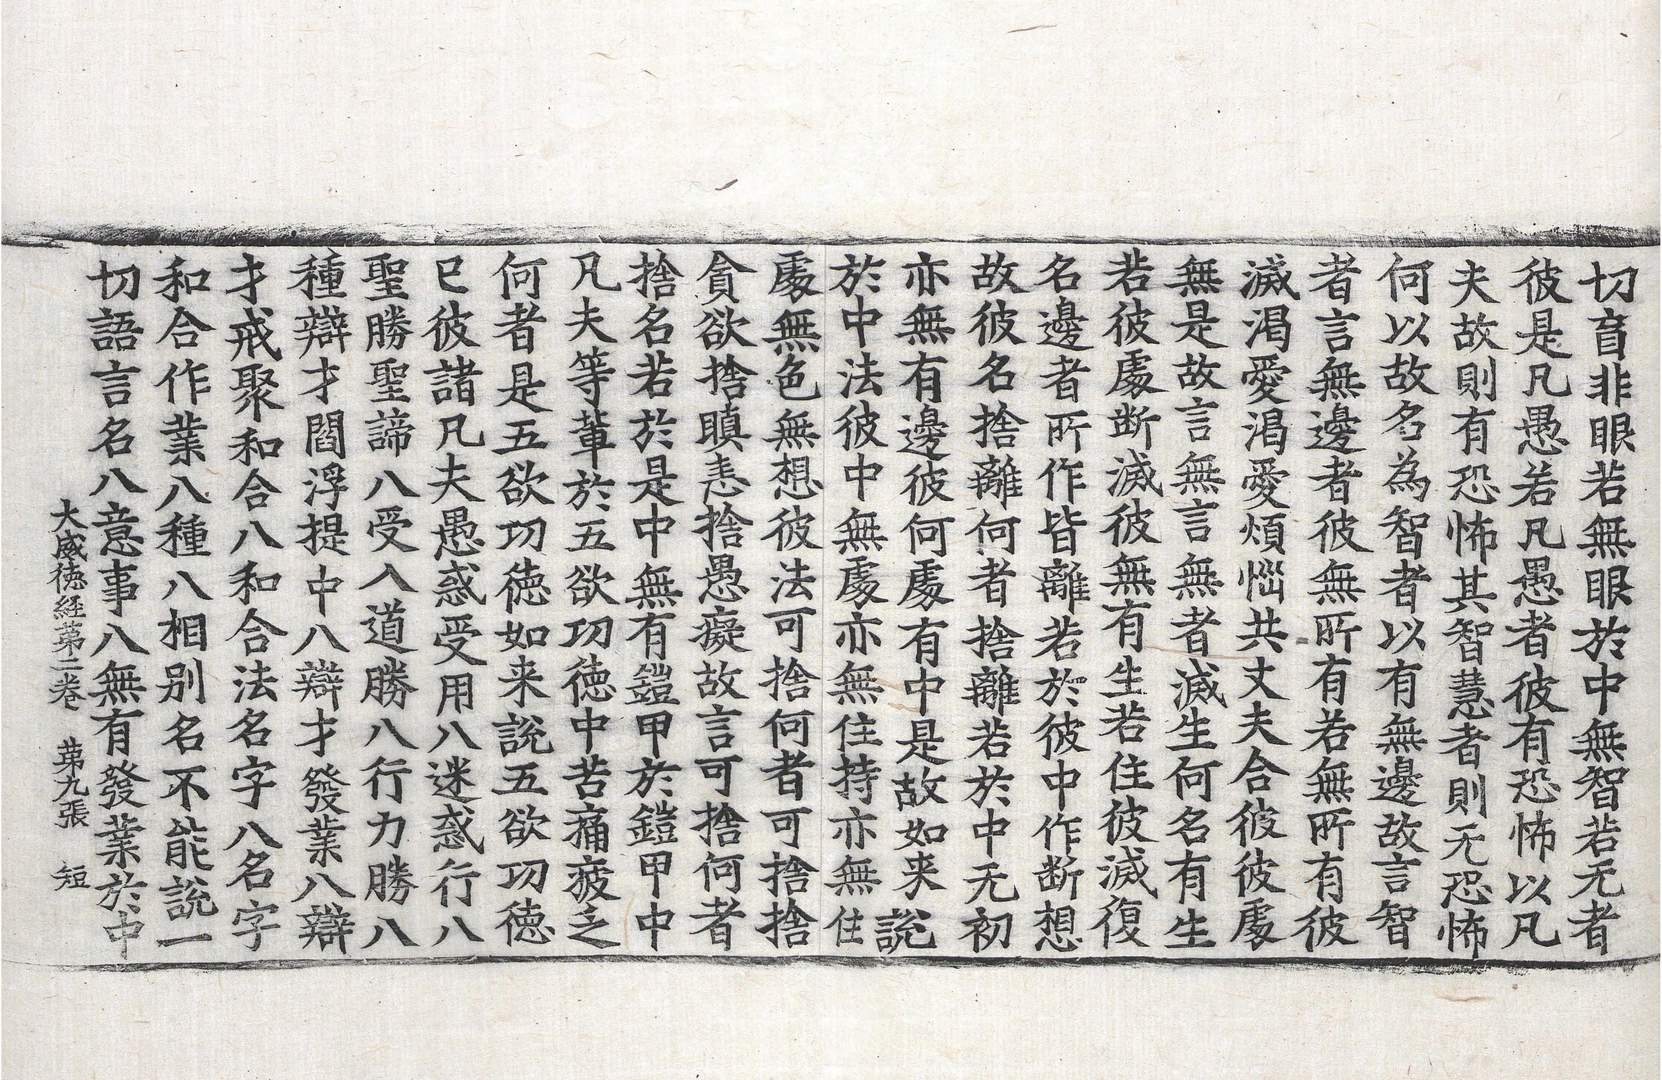 切盲非眼若無眼於中無智若无者
彼是凡愚若凡愚者彼有恐怖以凡
夫故則有恐怖其智慧者則无恐怖
何以故名為智者以有無邊故言智
者言無邊者彼無所有若無所有彼
滅渴愛渴愛煩惱共丈夫合彼彼處
無是故言無言無者滅生何名有生
若彼處断滅彼無有生若住彼滅復
名邊者所作皆離若於彼中作断想
故彼名捨離何者捨離若於中无初
亦無有邊彼何處有中是故如来說
於中法彼中無處亦無住持亦無住
處無色無想彼法可捨何者可捨捨
貪欲捨瞋恚捨愚癡故言可捨何者
捨名若於是中無有鎧甲於鎧甲中
凡夫等輩於五欲功德中苦痛疲乏
何者是五欲功德如来說五欲功德
已彼諸凡夫愚惑受用八迷惑行八
聖勝聖諦八受八道勝八行力勝八
種辯才閻浮提中八辯才發業八辯
才戒聚和合八和合法名字八名字
和合作業八種八相別名不能說一
切語言名八意事八無有發業於中
大威德經第二卷 第九張 短